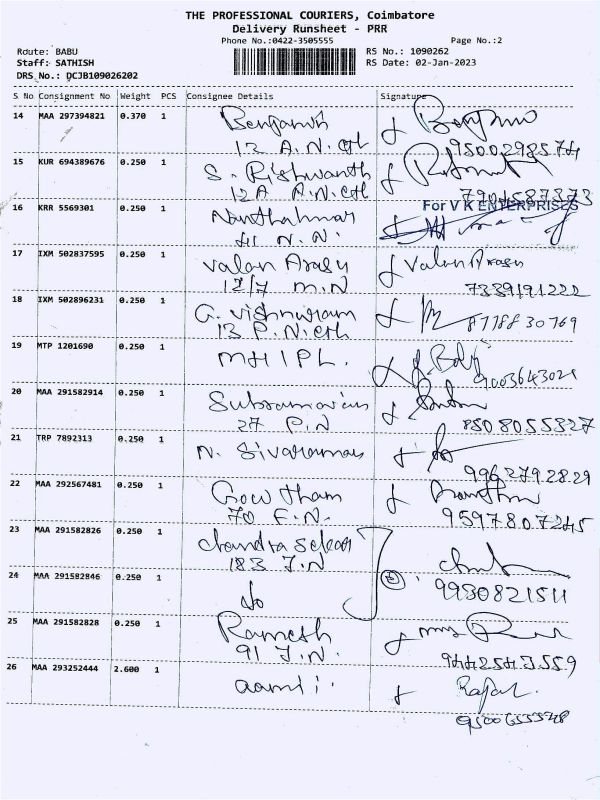 THE PROFESSIONAL COURIERS, Coimbatore
Delivery Runsheet - PRR
Phone No.:0422-3505555 Page No.:2
Route: BABU RS No.: 1090262
Staff: SATHISH RS Date: 02-Jan-2023
DRS No.: DCJB109026202
S No Consignment No Weight PCS Consignee Details Signature
14 MAA 297394821 0.370 1 Benjamin
12 A.N.Cth 9500298574
15 KUR 694389676 0.250 1 S. Rishwanth
12A A.N.Cth
16 KRR 5569301 0.250 1 For V K ENTERPRISES
41 N.N.
17 IXM 502837595 0.250 1 Valan Arasu Valan Arasu
12/7 M.N 7339191222
18 IXM 502896231 0.250 1 G. Vishnuram
13 P.N.Cth 8778830769
19 MTP 1201690 0.250 1 MHIPL.
9003643021
20 MAA 291582914 0.250 1 Subramanian
27 P.N 8508055827
21 TRP 7892313 0.250 1 N. Sivaraman
9962792829
22 MAA 292567481 0.250 1 Gowtham
70 F.N. 9597807245
23 MAA 291582826 0.250 1 Chandra Sekar
183 J.N
24 MAA 291582846 0.250 1 do 2 9930821511
25 MAA 291582828 0.250 1 Ramesh
91 J.N. 9442543559
26 MAA 293252444 2.600 1